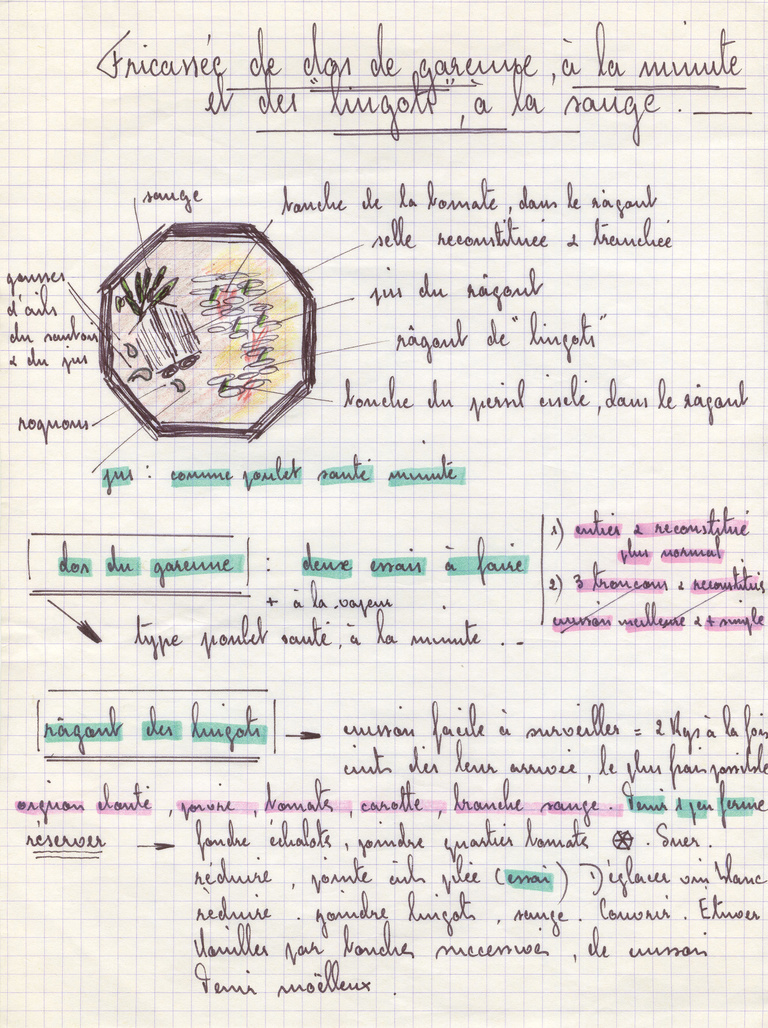 Fricassée de dos de garenne, à la minute
et des "lingots", à la sauge.
sauge
touche de la tomate, dans le râgout
selle reconstituée & tranchée
gousses
d'ails
du sautois
& du jus
jus du râgout
râgout de "lingots"
touche du persil ciselé, dans le râgout
rognons
jus : comme poulet sauté minute
dos du garenne : deux essais à faire
+ à la vapeur
1) entier & reconstitué
plus normal
2) 3 troncons & reconstitués
cuisson meilleure & + simple
type poulet sauté, à la minute . --
râgout des lingots → cuisson facile à surveiller = 2 Kgs à la fois
cuits dès leur arrivée, le plus frais possible
oignon clouté, poivre, tomate, carotte, branche sauge. Tenir 1 peu ferme
réserver → fondre échalote, joindre quartier tomate . Suer.
réduire, pointe ail pilée (essai) Déglacer vin blanc
réduire. joindre lingots, sauge. Couvrir. Etuver
Mouiller par touches successives, de cuisson
Tenir moëlleux.